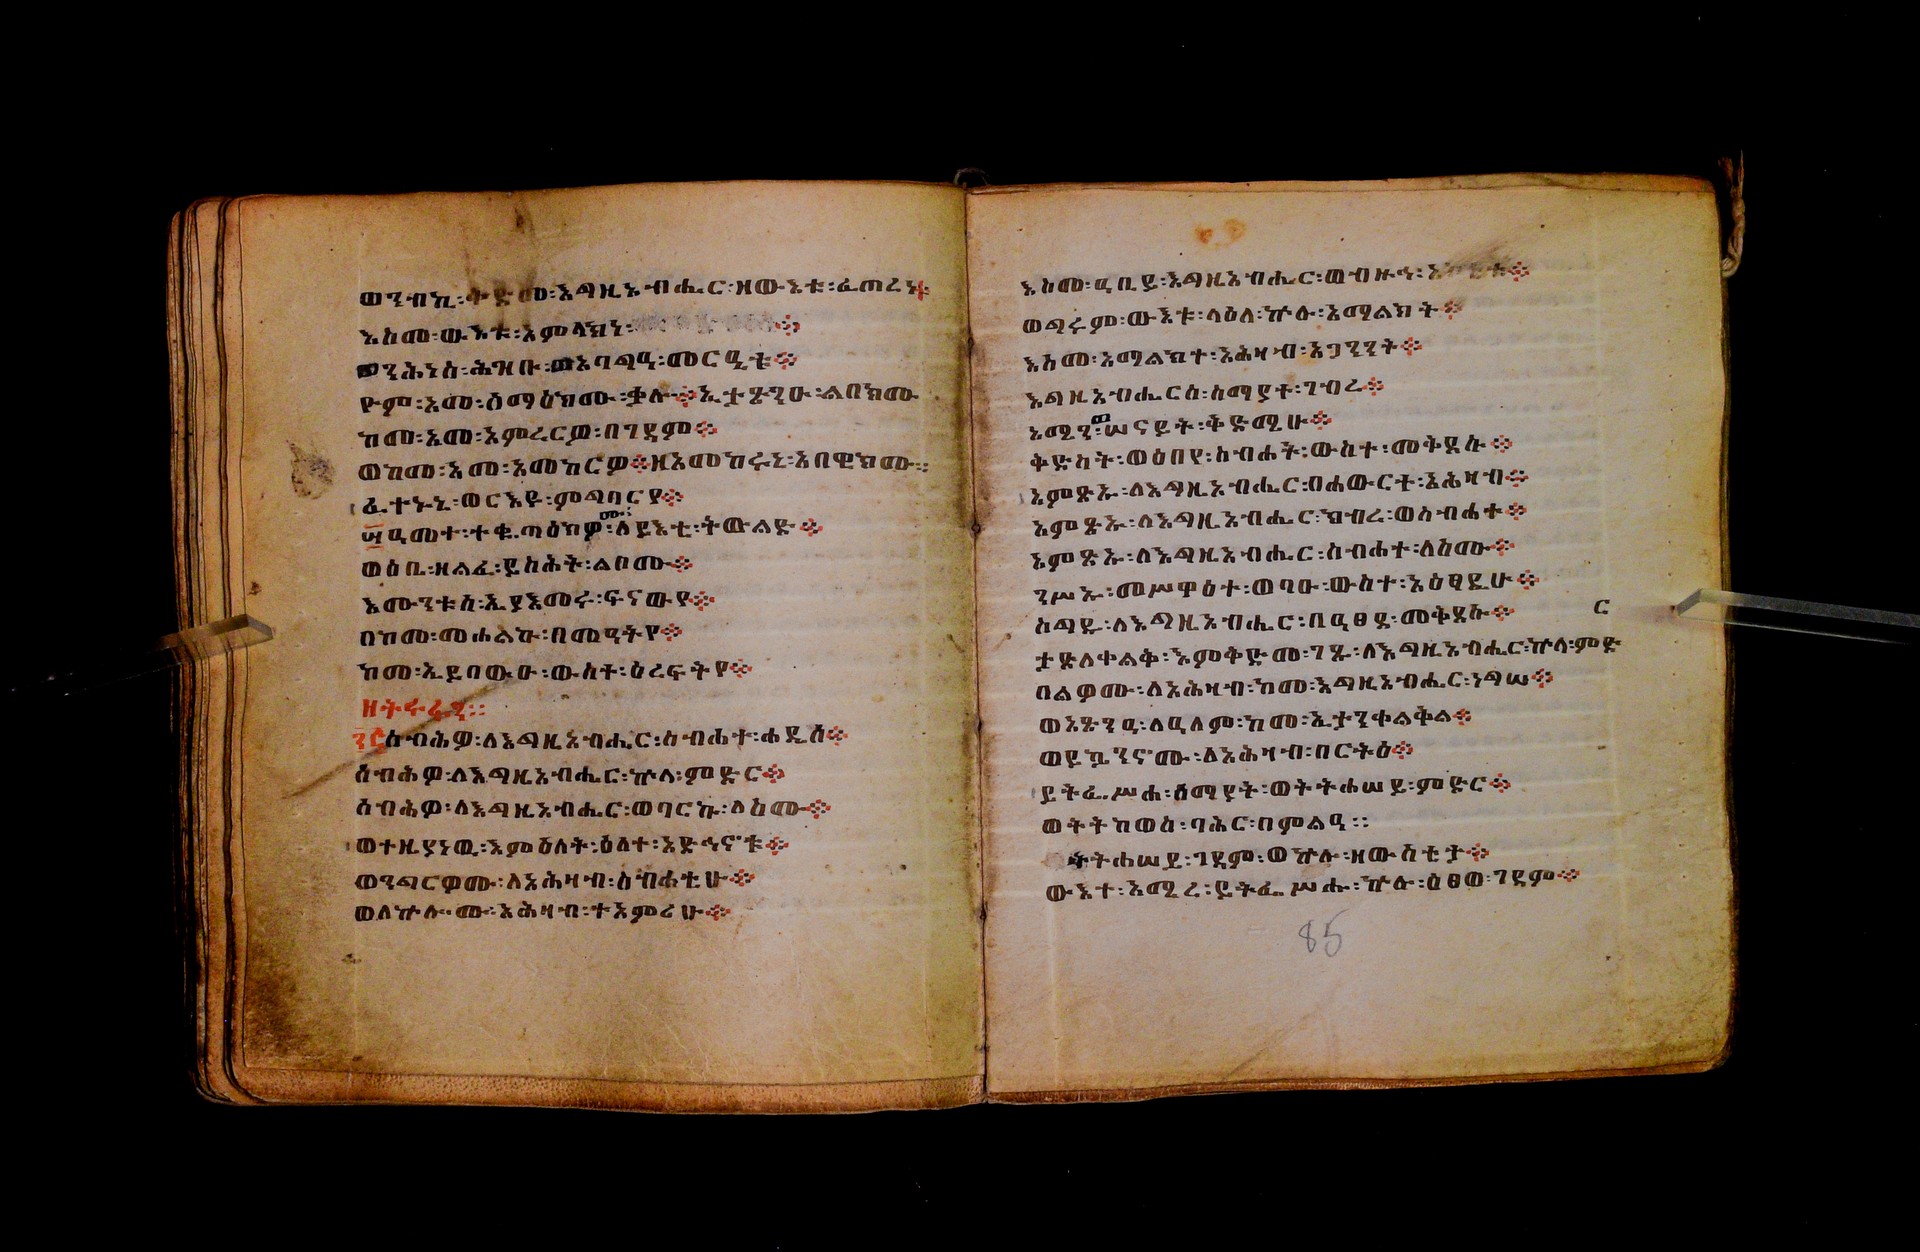 ወንብኪ፡ቅድመ፡እግዚአብሔር፡ዘውእቱ፡ፈጠረነ፨
እስመ፡ውእቱ፡አምላክነ፡
ወንሕነሰ፡ሕዝቡ፡ወአባግዒ፡መርዔቱ፨
ዮም፡እመ፡ሰማዕክሙ፡ቃሎ፨ኢታፅንዑ፡ልበክሙ
ከመ፡አመ፡አምረርዎ፡በገዳም፨
ወከመ፡አመ፡አመከርዎ፨ዘአመከሩኒ፡አበዊክሙ፡፡
ፈተኑኒ፡ወርእዩ፡ምግባርየ፨
፵ዓመተ፡ተቈጣዕክዎሙ፡ለይእቲ፡ትውልድ፨
ወዕቤ፡ዘልፈ፡ይስሕት፡ልቦሙ፨
እሙንቱሰ፡ኢያእመሩ፡ፍናውየ፨
በከመ፡መሐልኩ፡በመዓትየ፨
ከመ፡ኢይበውዑ፡ውስተ፡ዕረፍትየ፨
ዘትፍሬሂ፡፡
፺፭ሰብሕዎ፡ለእግዚአብሔር፡ስብሐተ፡ሐዲሰ፨
ሰብሕዎ፡ለእግዚአብሔር፡ኵላ፡ምድር፨
ሰብሕዎ፡ለእግዚአብሔር፡ወባርኩ፡ለስሙ፨
ወተዚያነዉ፡እምዕለት፡ዕለተ፡አድኅኖቱ፨
ወንግርዎሙ፡ለአሕዛብ፡ስብሐቲሁ፨
ወለኵሎሙ፡አሕዛብ፡ተአምሪሁ፨
እስመ፡ዓቢይ፡እግዚአብሔር፡ወብዙኅ፡
ወግሩም፡ውእቱ፡ላዕለ፡ኵሉ፡አማልክት፨
እስመ፡አማልክተ፡አሕዛብ፡አጋንንት፨
እግዚአብሔርሰ፡ሰማያተ፡ገብረ፨
አሚን፡ወሠናይት፡ቅድሜሁ፨
ቅድሳት፡ወዕበየ፡ስብሐት፡ውስተ፡መቅደሱ፨
አምጽኡ፡ለእግዚአብሔር፡በሐውርተ፡አሕዛብ፨
አምጽኡ፡ለእግዚአብሔር፡ክብረ፡ወስብሐተ፨
አምጽኡ፡ለእግዚአብሔር፡ስብሐተ፡ለስሙ፨
ንሥኡ፡መሥዋዕተ፡ወባኡ፡ውስተ፡አዕፃዲሁ፨
ስግዱ፡ለእግዚአብሔር፡በዓፀደ፡መቅደሱ፨
ር
ታድለቀልቅ፡እምቅድመ፡ገጹ፡ለእግዚአብሔር፡ኵላ፡ምድ
በልዎሙ፡ለአሕዛብ፡ከመ፡እግዚአብሔር፡ነግሠ፨
ወአጽንዓ፡ለዓለም፡ከመ፡ኢታንቀልቅል፨
ወይኴንኖሙ፡ለአሕዛብ፡በርትዕ፨
ይትፌሥሐ፡ሰማያት፡ወትትሐሠይ፡ምድር፨
ወትትከወስ፡ባሕር፡በምልዓ፡፡
ትትሐሠይ፡ገዳም፡ወኵሉ፡ዘውስቴታ፨
ውእተ፡አሚረ፡ይትፌሥሑ፡ኵሉ፡ዕፀወ፡ገዳም፨
85